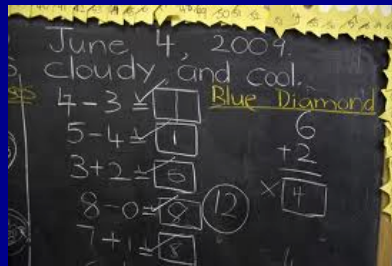 June 4, 2009.
cloudy, and cool.
4-3=1
5-4=1
3+2=5
8-0=8
7+1=8
Blue Diamond
6
+2
× 4
12